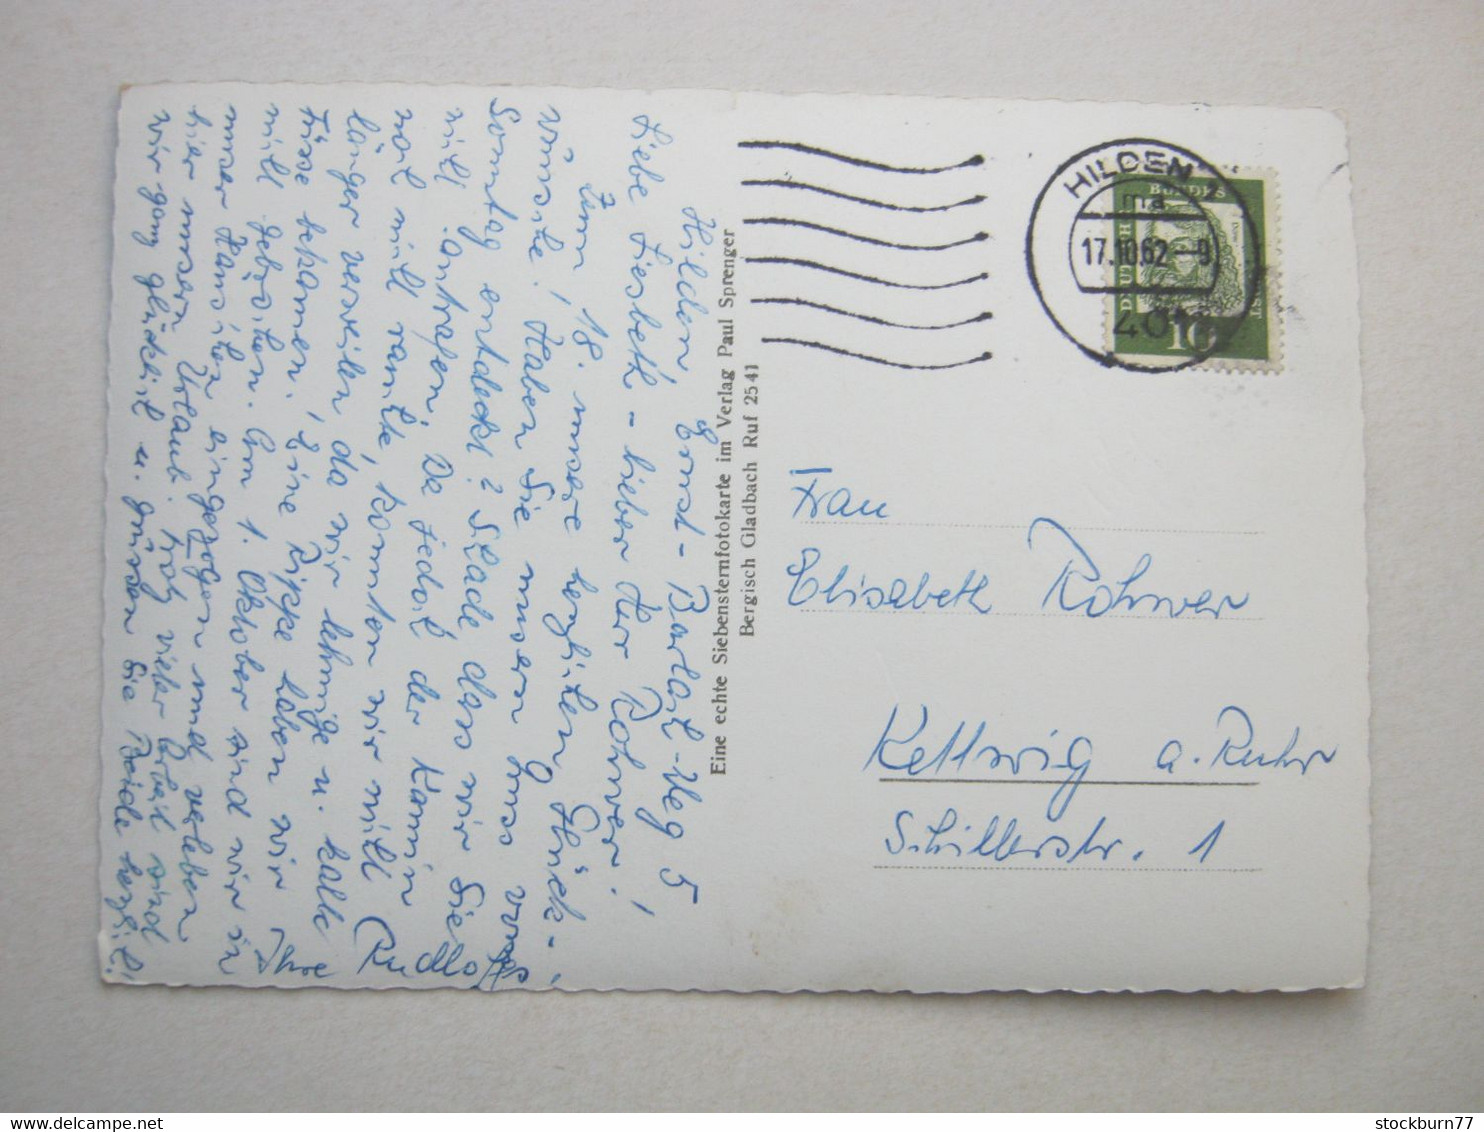 Hilden, Ernst-Barlach-Weg 5
Liebe Liesbeth - lieber Herr Rohwer!
Zum 18. unsere herzlichen Glück-
wünsche! Haben Sie unsern Gruss vom
Sonntag entdeckt? Schade dass wir Sie
nicht antrafen. Da jedoch der Kamin
noch nicht rauchte, konnten wir nicht
länger verweilen da wir lehmige u. kalte
Füsse bekamen! Eine Rippe haben wir
nicht gebrochen. Am 1. Oktober sind wir in
unser Häuschen eingezogen und verleben
hier unsern Urlaub. Trotz vieler Arbeit sind
wir ganz glücklich u. grüssen Sie Beide herzlich!
Ihre Rudloffs
Eine echte Siebensternfotokarte im Verlag Paul Sprenger
Bergisch Gladbach Ruf 2541
HILDEN 1
ma
17.10.62-9
401
DEUTSCHE
BUNDESPOST
10
Frau
Elisabeth Rohwer
Kettwig a. Ruhr
Schillerstr. 1
stockburn77
delcampe.net